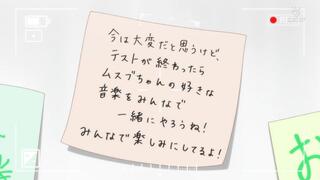 今は大変だと思うけど、
テストが終わったら
ムスブちゃんの好きな
音楽をみんなで
一緒にやろうね!
みんなで楽しみにしてるよ!
お